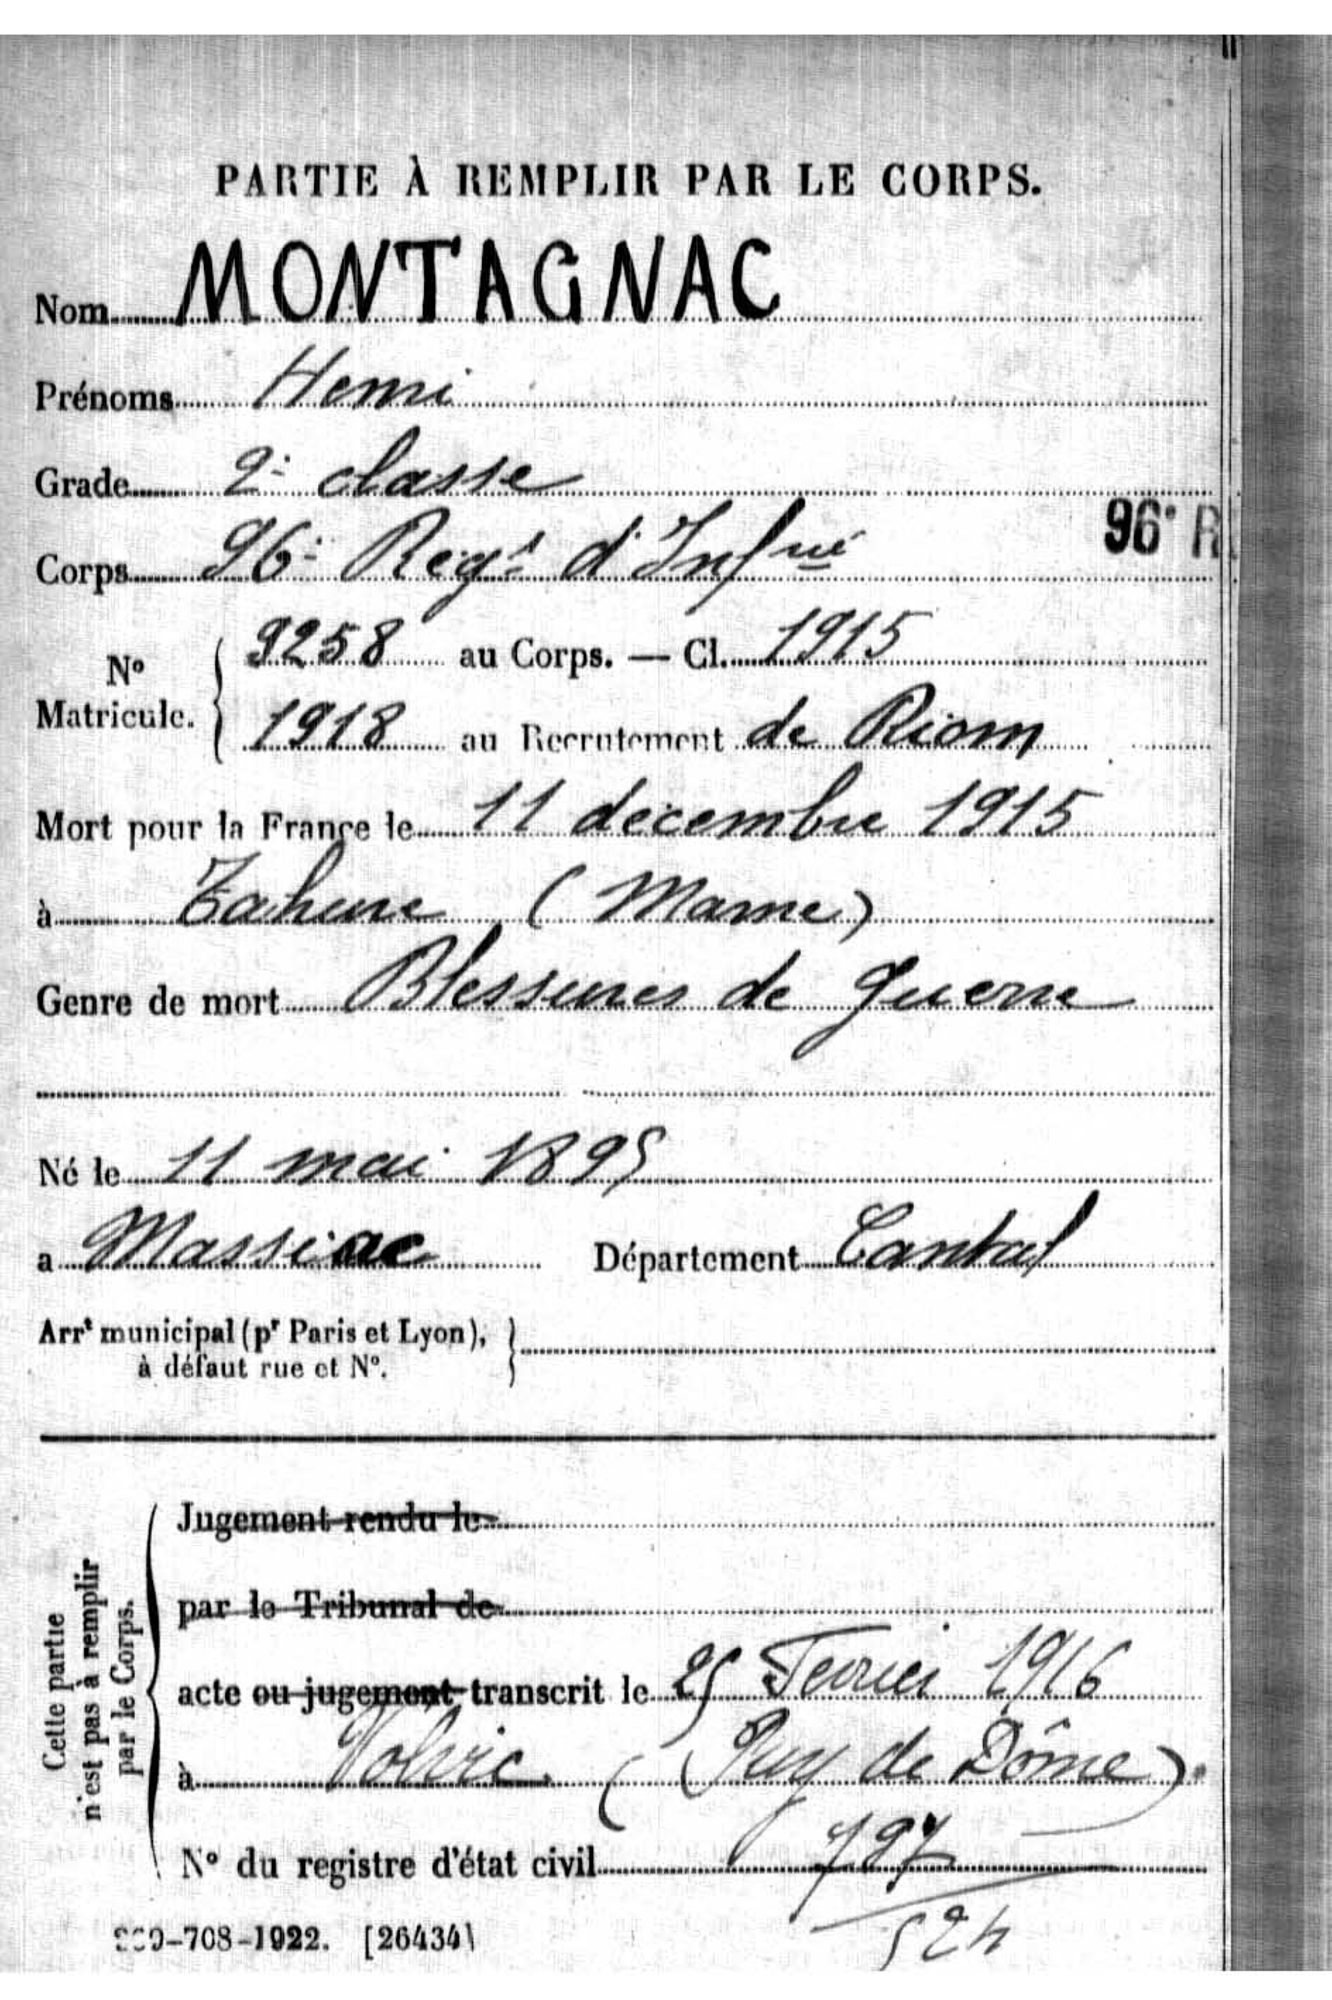 PARTIE À REMPLIR PAR LE CORPS.
Nom MONTAGNAC
Prénoms Henri
Grade 2e classe
96e R
Corps 96e Regt d'Infrie
No Matricule. 9258 au Corps. — Cl. 1915
1918 au Recrutement de Riom
Mort pour la France le 11 décembre 1915
à Tahure (Marne)
Genre de mort Blessures de guerre
Né le 11 mai 1895
a Massiac Département Cantal
Arrt municipal (pr Paris et Lyon),
à défaut rue et No.
Cette partie
n'est pas à remplir
par le Corps.
Jugement rendu le
par le Tribunal de
acte ou jugement transcrit le 25 Fevrier 1916
à Volvic (Puy de Dôme).
No du registre d'état civil 797
524
-708-1922. [26434]